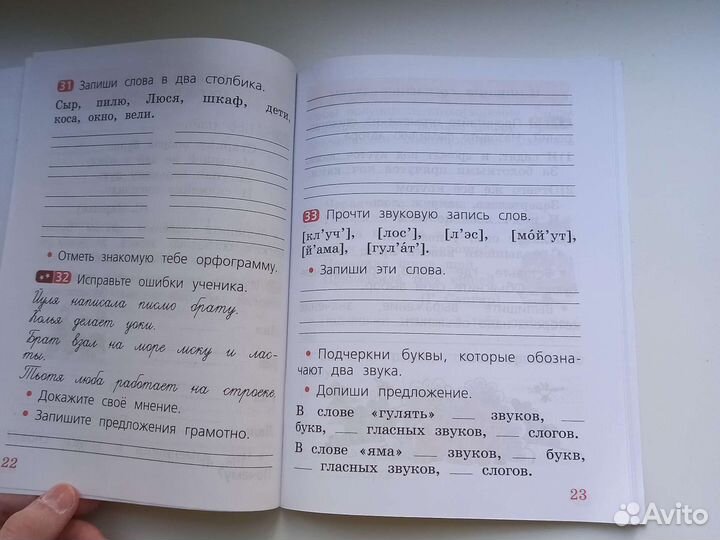 31 Запиши слова в два столбика.
Сыр, пилю, Люся, шкаф, дети,
коса, окно, вели.
• Отметь знакомую тебе орфограмму.
32 Исправьте ошибки ученика.
Йуля написала писмо брату.
Колья делает уоки.
Брат взал на море моску и лас-
ты.
Тьотя люба работает на строеке.
• Докажите своё мнение.
• Запишите предложения грамотно.
22
33 Прочти звуковую запись слов.
[кл'уч'], [лос'], [л'эс], [мо́й'ут],
[й'ама], [гул'а́т'].
• Запиши эти слова.
• Подчеркни буквы, которые обозна-
чают два звука.
• Допиши предложение.
В слове «гулять» __ звуков, __
букв, __ гласных звуков, __ слогов.
В слове «яма» __ звуков, __ букв,
__ гласных звуков, __ слогов.
23
Avito